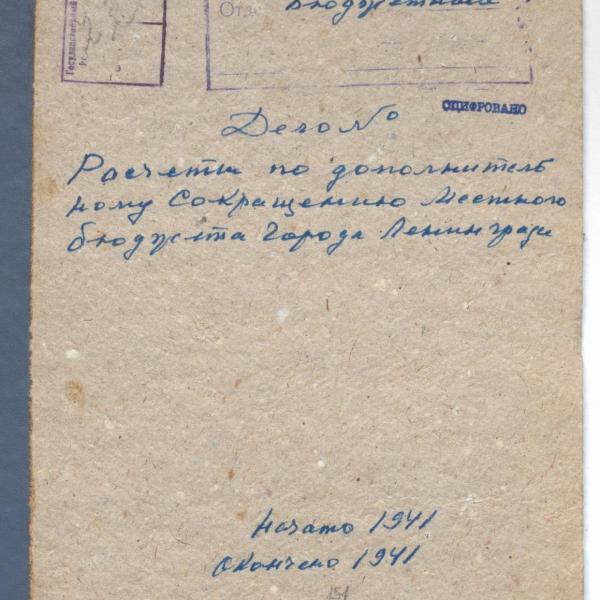 Государственный
Отд
Бюджетный
ОЦИФРОВАНО
Дело №
Расчеты по дополнитель
ному Сокращению Местного
бюджета Города Ленинграда
Начато 1941
Окончено 1941
151